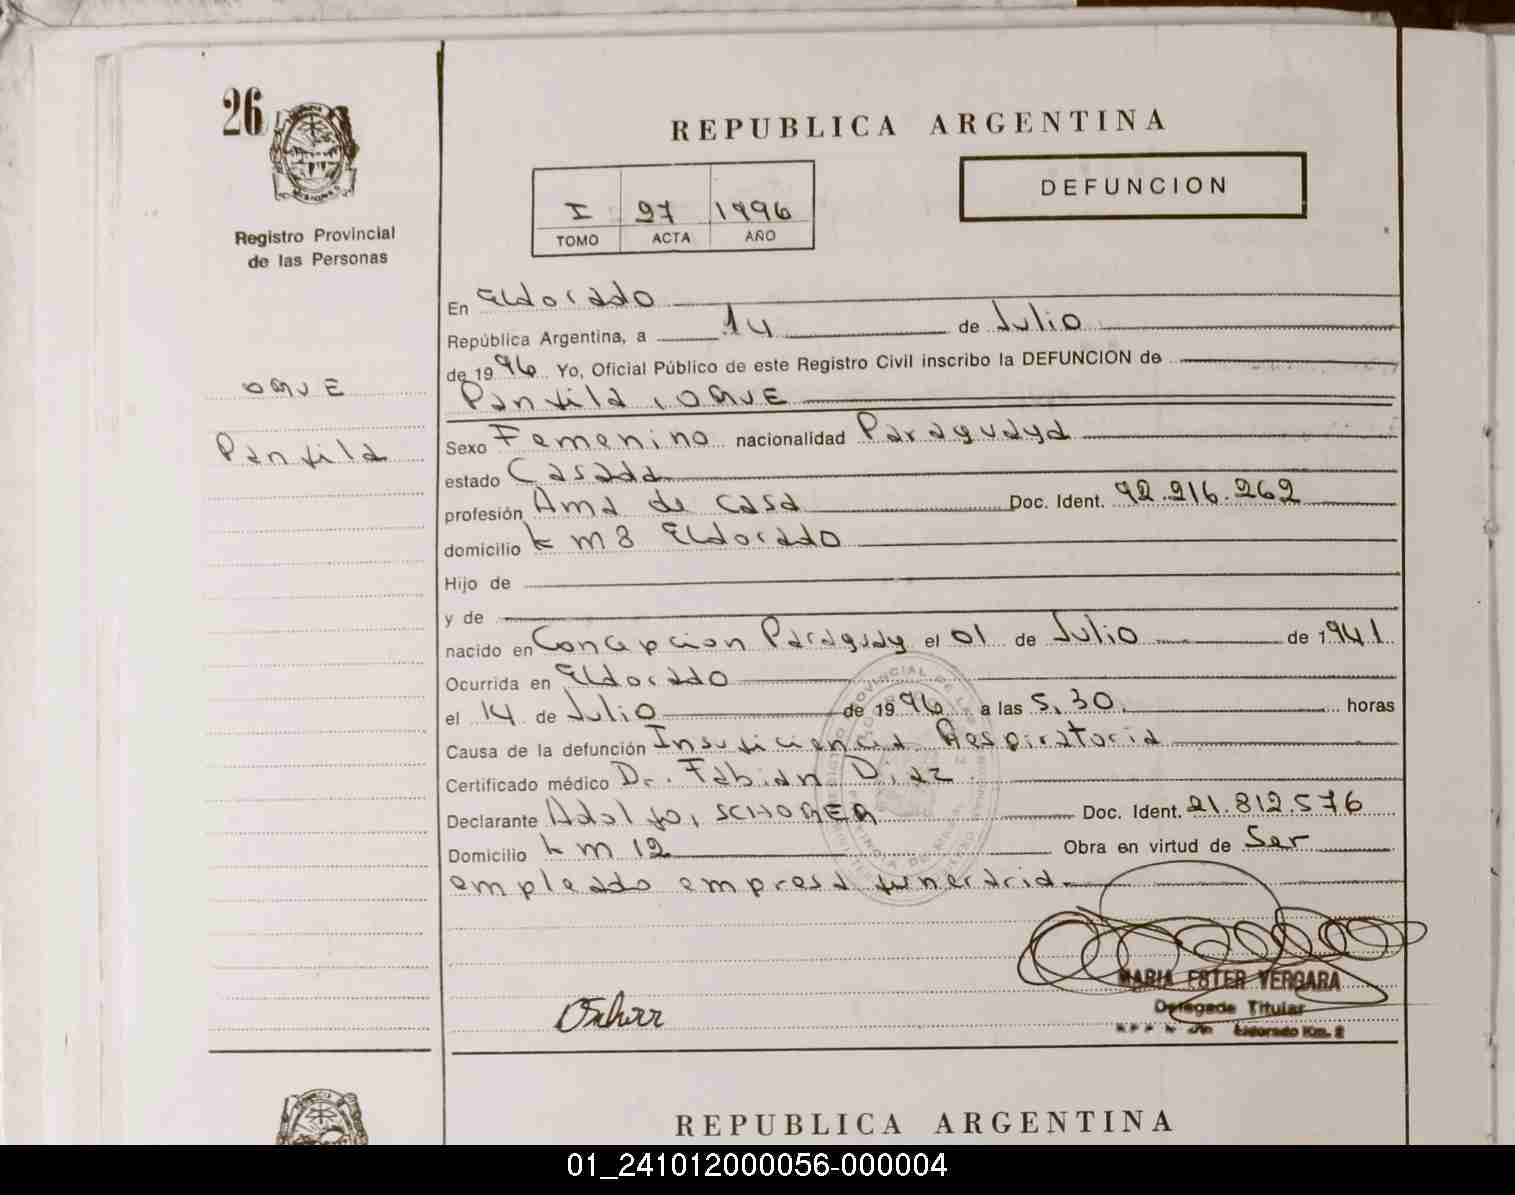 26
REPUBLICA ARGENTINA
DEFUNCION
I 97 1996
TOMO ACTA AÑO
Registro Provincial
de las Personas
En Eldorado
República Argentina, a 14 de Julio
de 1996 Yo, Oficial Público de este Registro Civil inscribo la DEFUNCION de
OQUE
Panfila, OQUE
Panfila
Sexo Femenino nacionalidad Paraguaya
estado Casada
profesión Ama de casa Doc. Ident. 92.216.262
domicilio km 8 Eldorado
Hijo de
y de
nacido en Concepcion Paraguay el 01 de Julio de 1941
Ocurrida en Eldorado
el 14 de Julio de 1996 a las 5,30 horas
Causa de la defunción Insuficiencia Respiratoria
Certificado médico Dr. Fabian Diaz
Declarante Adolfo, SCHORER Doc. Ident. 21.812.576
Domicilio km 12 Obra en virtud de Ser
empleado empresa funeraria
MARIA ESTER VERGARA
Delegada Titular
Eldorado Km. 2
REPUBLICA ARGENTINA
01_241012000056-000004